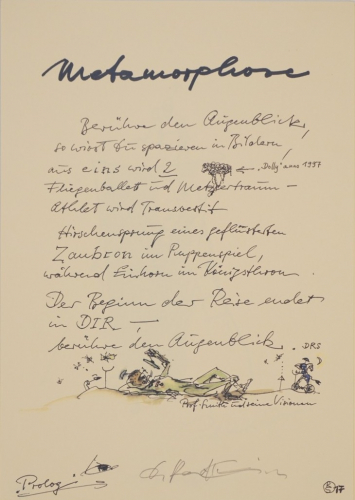 Metamorphose
Berühre den Augenblick,
so wirst Du spazieren in Bildern,
aus eins wird 2 ← "Dolly" anno 1997
Fliegenballett und Metzgertraum –
Athlet wird Transvestit
Hirschensprung eines geflüsterten
Zaubrers im Puppenspiel,
während Einhorn im Königsthron.
Der Beginn der Reise endet
in DIR –
berühre den Augenblick. DRS
Prof. und seine Visionen
Prolog
17